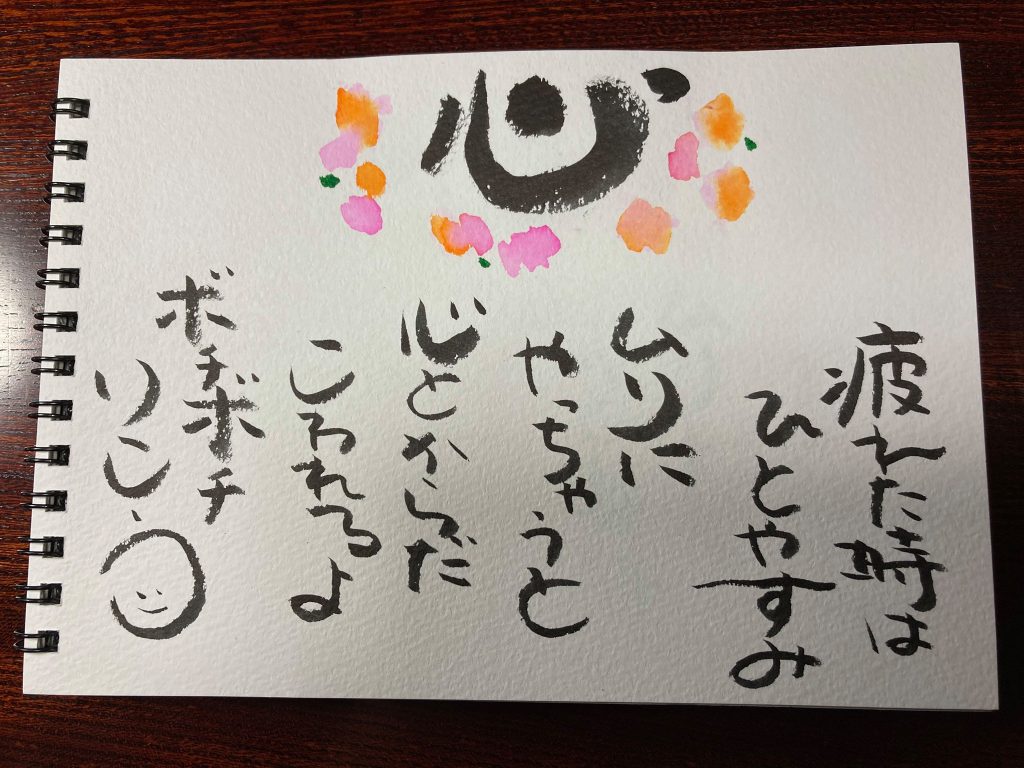 心
疲れた時は
ひとやすみ
ムリに
やっちゃうと
心とからだ
こわれるよ
ボチボチ